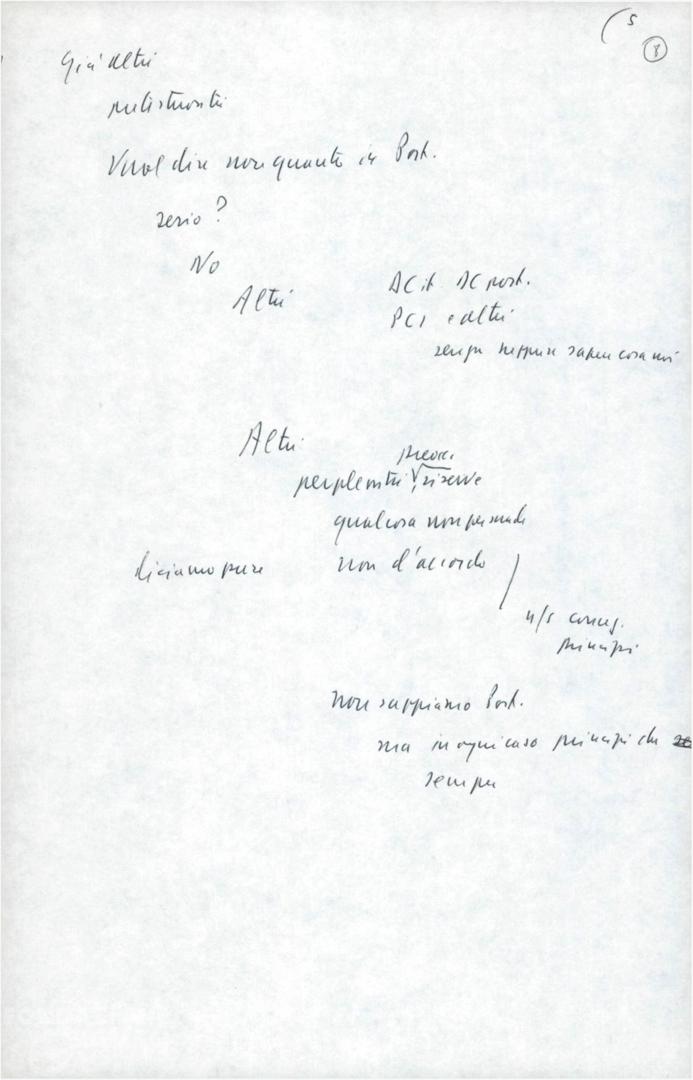 5
8
Già altri
Vuol dire non quanto in Port.
serio?
No
Altri
DC it DC port.
PCI e altri
senza neppure sapere cosa noi
Altri
preocc.
perplessità, riserve
qualcosa non persuade
diciamo pure non d'accordo
n/s conceg.
principi
non sappiamo Port.
ma in ogni caso principi che
sempre